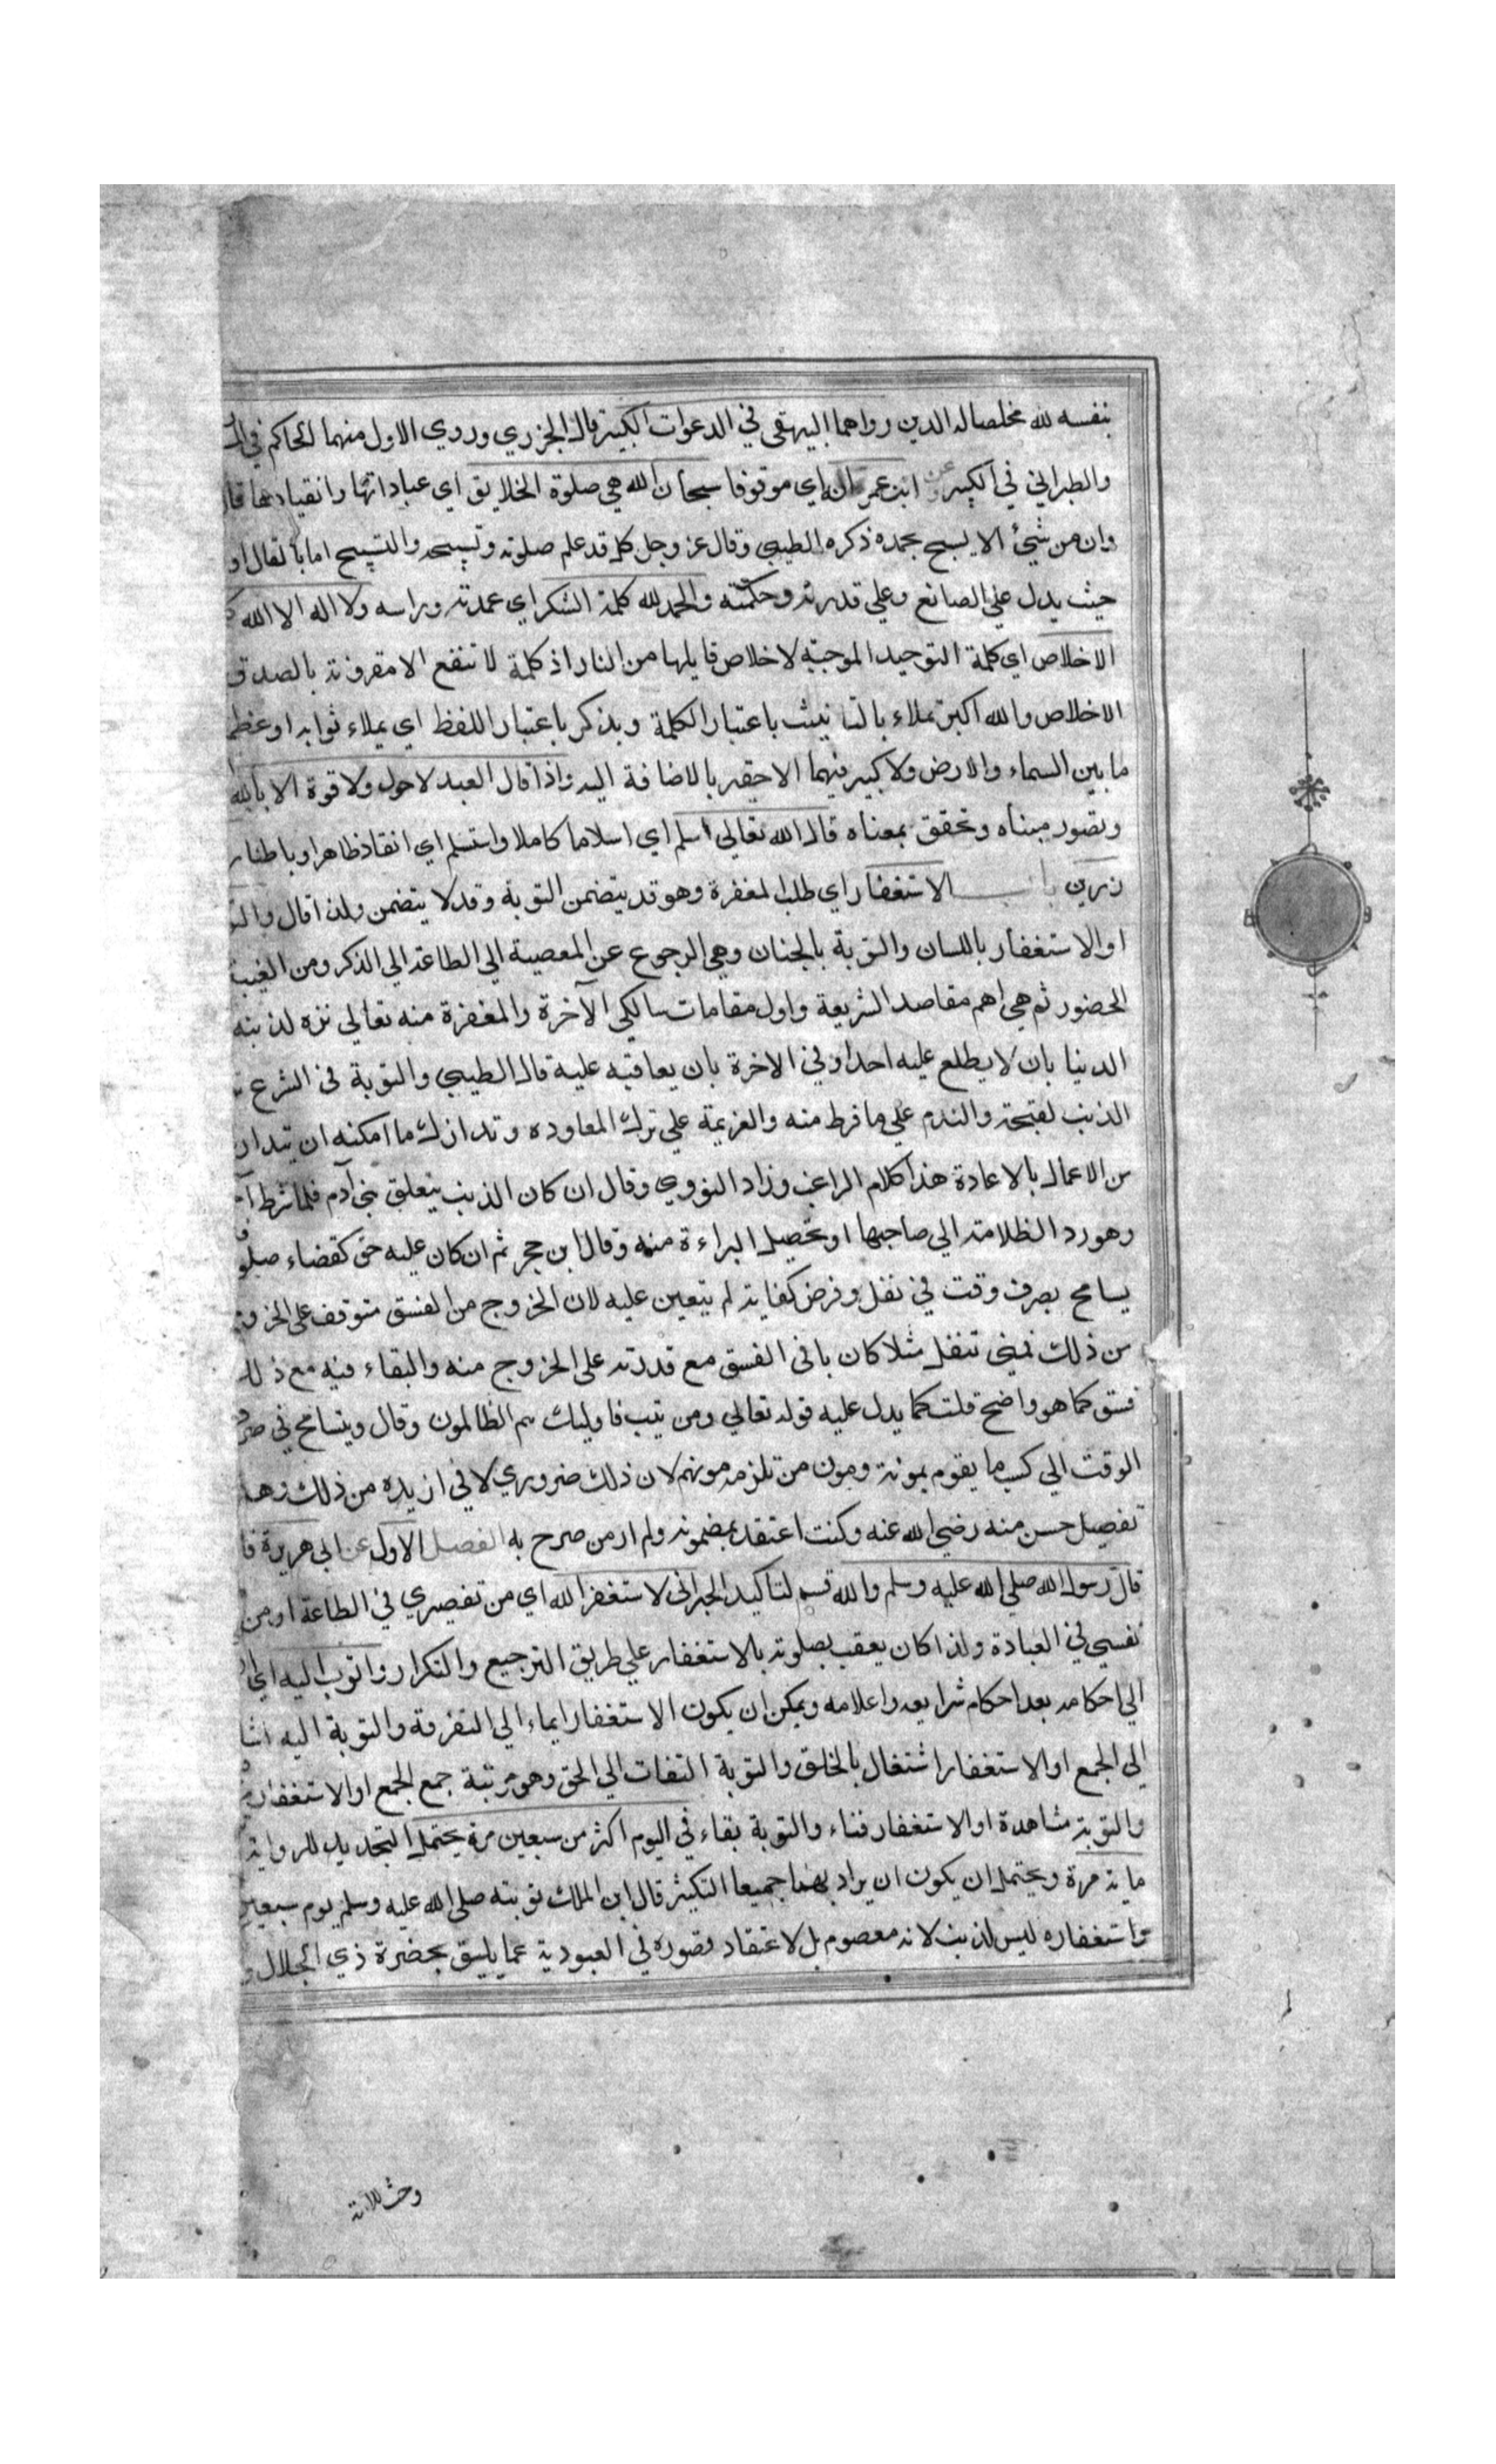 بنفسه لله مخلصا له الدين رواهما البيهقي في الدعوات الكبير قال الجزري وروي الاول منهما الحاكم في
والطبراني في الكبير عن ابن عمر انه اي موقوفا سبحان الله هي صلوة الخلايق اي عباداتها وانقيادها قال
وان من شئ الا يسبح بحمده ذكره الطيبي وقال عز وجل كل قد علم صلوته وتسبيحه والتسبيح اما بالقال او
حيث يدل علي الصانع وعلي قدرته وحكمته والحمد لله كلمة الشكر اي عمدته وراسه ولا اله الا الله
الاخلاص اي كلمة التوحيد الموجبة لاخلاص قايلها من النار اذ كلمة لا تنفع الا مقرونة بالصدق
الاخلاص والله اكبر تملاء بالتانيث باعتبار الكلمة ويذكر باعتبار اللفظ اي يملاء ثوابه او عظم
ما بين السماء والارض ولا كبير فيهما الا حقير بالاضافة اليه واذا قال العبد لا حول ولا قوة الا بالله
وتصور مبناه وتحقق بمعناه قال الله تعالي اسلم اي اسلاما كاملا واستسلم اي انقاد ظاهرا وباطنا ر
زرين باب الاستغفار اي طلب المغفرة وهو قد يتضمن التوبة وقد لا يتضمن ولذا قال والتو
او الاستغفار باللسان والتوبة بالجنان وهي الرجوع عن المعصية الي الطاعة الي الذكر ومن الغيبة
الحضور ثم هي اهم مقاصد الشريعة واول مقامات سالكي الآخرة والمغفرة منه تعالي نزه لذنبه
الدنيا بان لا يطلع عليه احدا وفي الاخرة بان يعاقبه عليه قال الطيبي والتوبة في الشرع
الذنب لقبحه والندم علي ما فرط منه والعزيمة علي ترك المعاوده وتدارك ما امكنه ان يتدارك
من الاعمال بالاعادة هذا كلام الراغب وزاد النووي وقال ان كان الذنب يتعلق ببني آدم فلها شرط آ
وهو رد الظلامة الي صاحبها او تحصيل البراءة منه وقال ابن حجر ثم ان كان عليه حق كقضاء صلو
يسامح بصرف وقت في نفل وفرض كفاية لم يتعين عليه لان الخروج من الفسق متوقف على الخرو
من ذلك فمتى تنفل مثلا كان باقى الفسق مع قدرته على الخروج منه والبقاء فيه مع ذلك
فسق كما هو واضح قلت كما يدل عليه قوله تعالي ومن يتب فاوليك هم الظالمون وقال ويتسامح في صر
الوقت الي كسب ما يقوم بمونة ومون من تلزمه مونهم لان ذلك ضروري لا في ازيد من ذلك وهذا
تفصيل حسن منه رضي الله عنه وكنت اعتقد بمضمونه ولم ار من صرح به الفصل الاول عن ابي هريرة قا
قال رسول الله صلي الله عليه وسلم والله قسم لتاكيد الخبر انى لاستغفر الله اي من تقصيري في الطاعة او من
نفسي في العبادة ولذا كان يعقب بصلوته بالاستغفار علي طريق الترجيع والتكرار واتوب اليه اي
الي احكامه بعد احكام شرايعه واعلامه ويمكن ان يكون الاستغفار ايماء الي التفرقة والتوبة اليه اشا
الي الجمع او الاستغفار اشتغال بالخلق والتوبة التفات الي الحق وهو مرتبة جمع الجمع او الاستغفار
والتوبة مشاهدة او الاستغفار فناء والتوبة بقاء في اليوم اكثر من سبعين مرة يحتمل التحديد للرواية
ماية مرة ويحتمل ان يكون ان يراد بهما جميعا التكثير قال ابن الملك توبته صلي الله عليه وسلم يوم سبعين
واستغفاره ليس لذنب لانه معصوم بل لاعتقاد قصوره في العبودية عما يليق بحضرة ذي الجلال